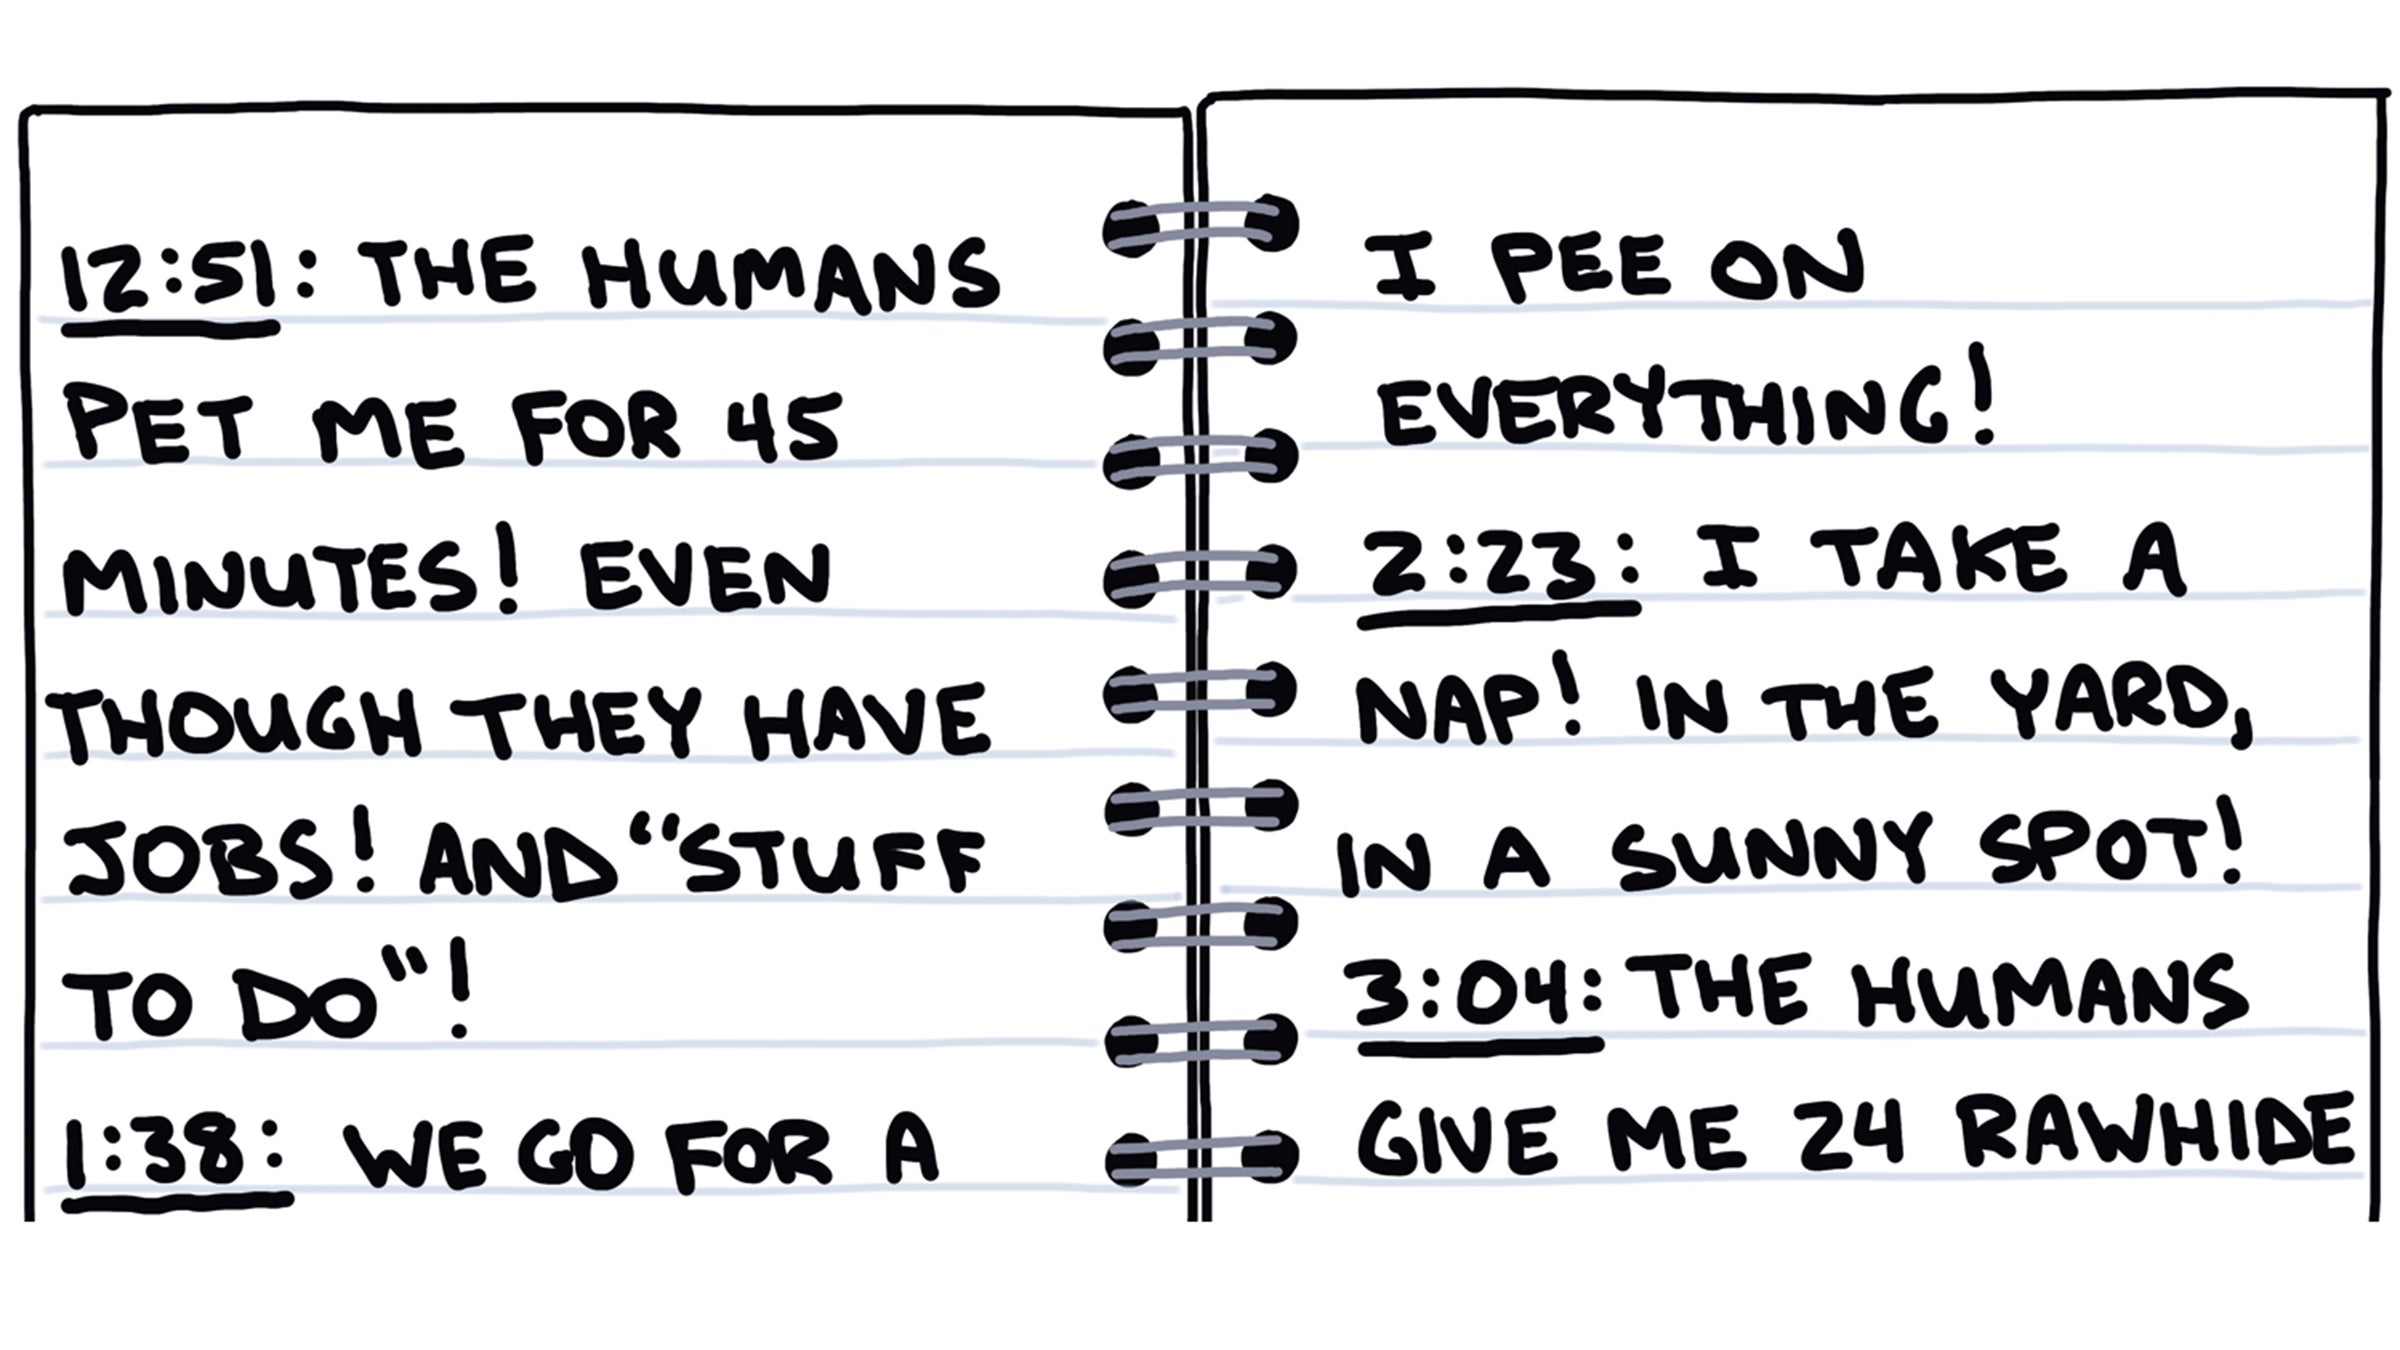 12:51: THE HUMANS
PET ME FOR 45
MINUTES! EVEN
THOUGH THEY HAVE
JOBS! AND "STUFF
TO DO"!
1:38: WE GO FOR A
I PEE ON
EVERYTHING!
2:23: I TAKE A
NAP! IN THE YARD,
IN A SUNNY SPOT!
3:04: THE HUMANS
GIVE ME 24 RAWHIDE